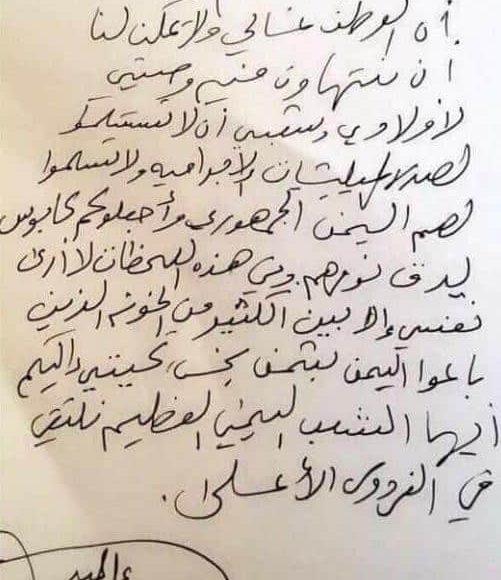 بأن الوطن غالي ولا يمكن لنا
أن نتهاون فيه وصيتي
لأولادي وشعبي أن لا تستسلمو
لهذه المليشيات الاجراميه ولا تسلموا
لهم اليمن الجمهوري وأجعلوكم كابوس
يدق نومهم وفي هذه اللحظات لا أرى
نفسي إلا بين الكثير من الخونه الذين
باعوا اليمن بثمن بخس تحيتي إليكم
أيها الشعب اليمني العظيم نلتقي
في الفردوس الأعلى.